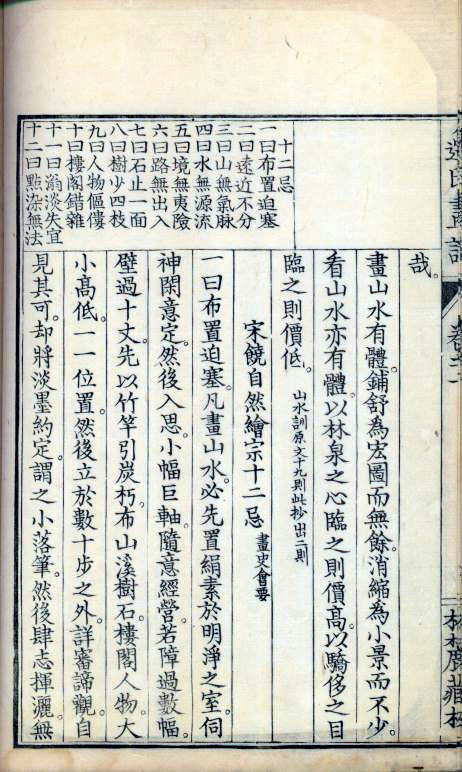 哉。
畫山水有體。鋪舒為宏圖而無餘。消縮為小景而不少。
看山水亦有體。以林泉之心臨之則價高。以驕侈之目
臨之則價低。山水訓原文十九則此抄出二則
十二忌
一曰布置迫塞
二曰遠近不分
三曰山無氣脉
四曰水無源流
五曰境無夷險
六曰路無出入
七曰石止一面
八曰樹少四枝
九曰人物傴僂
十曰樓閣錯雜
十一曰滃淡失宜
十二曰點染無法
宋饒自然繪宗十二忌 畫史會要
一曰布置迫塞。凡畫山水。必先置絹素於明淨之室。伺
神閑意定。然後入思。小幅巨軸。隨意經營。若障過數幅。
壁過十丈。先以竹竿引炭朽。布山溪樹石樓閣人物。大
小高低。一一位置。然後立於數十步之外。詳審諦觀。自
見其可。却將淡墨約定。謂之小落筆。然後肆志揮灑。無